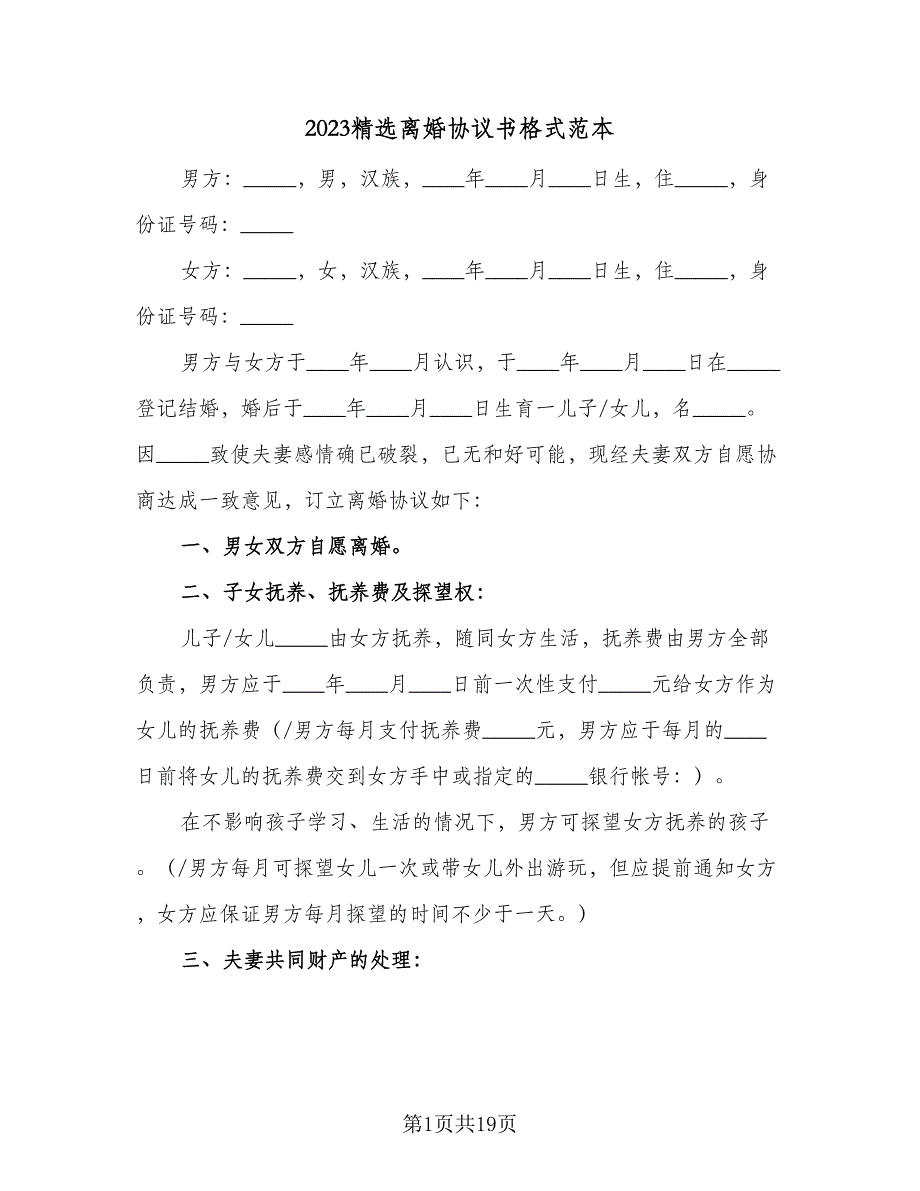 2023精选离婚协议书格式范本
男方：_____，男，汉族，____年____月____日生，住_____，身
份证号码：_____
女方：_____，女，汉族，____年____月____日生，住_____，身
份证号码：_____
男方与女方于____年____月认识，于____年____月____日在_____
登记结婚，婚后于____年____月____日生育一儿子/女儿，名_____。
因_____致使夫妻感情确已破裂，已无和好可能，现经夫妻双方自愿协
商达成一致意见，订立离婚协议如下：
一、男女双方自愿离婚。
二、子女抚养、抚养费及探望权：
儿子/女儿_____由女方抚养，随同女方生活，抚养费由男方全部
负责，男方应于____年____月____日前一次性支付_____元给女方作为
女儿的抚养费（/男方每月支付抚养费_____元，男方应于每月的____
日前将女儿的抚养费交到女方手中或指定的_____银行帐号：）。
在不影响孩子学习、生活的情况下，男方可探望女方抚养的孩子
。（/男方每月可探望女儿一次或带女儿外出游玩，但应提前通知女方
，女方应保证男方每月探望的时间不少于一天。）
三、夫妻共同财产的处理：
第1页共19页